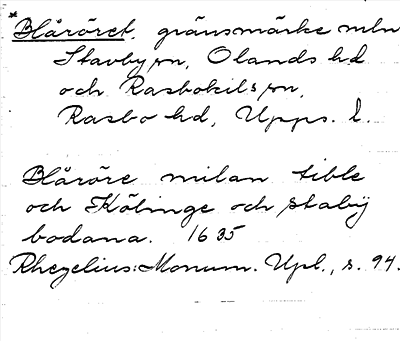 *Blåröret, gränsmärke mln
Stavby sn, Olands hd
och Rasbokils sn,
Rasbo hd, Upps. l.
Blåröre milan tible
och Kölinge och stabÿ
bodana. 1635
Rhezelius: Monum. Upl., s. 94.